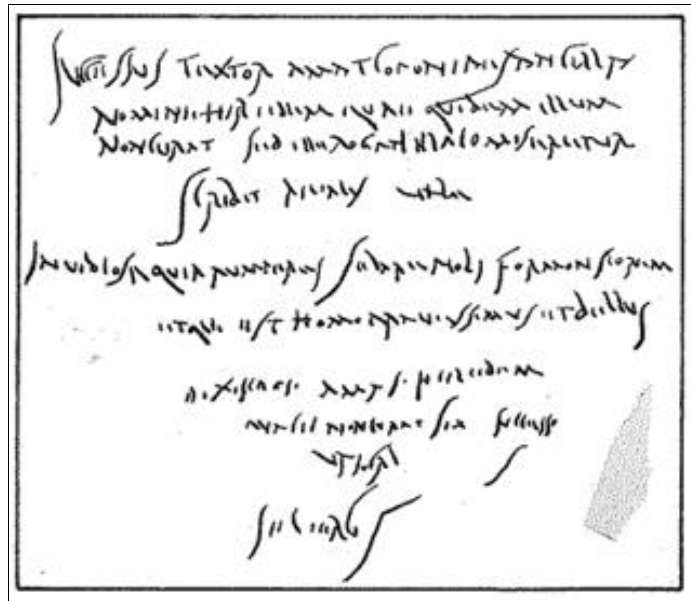 Successus textor amat coponiaes ancilla
nomine Hiredem quae quidem illum
non curat sed ille rogat illa comiseretur
scribit rivalis vale
invidiose quia rumperis secare noli formonsiorem
et qui est homo pravessimus et bellus
dixi scripsi amas Hiredem
quae te non curat six Successo
ut supra
s
Severus